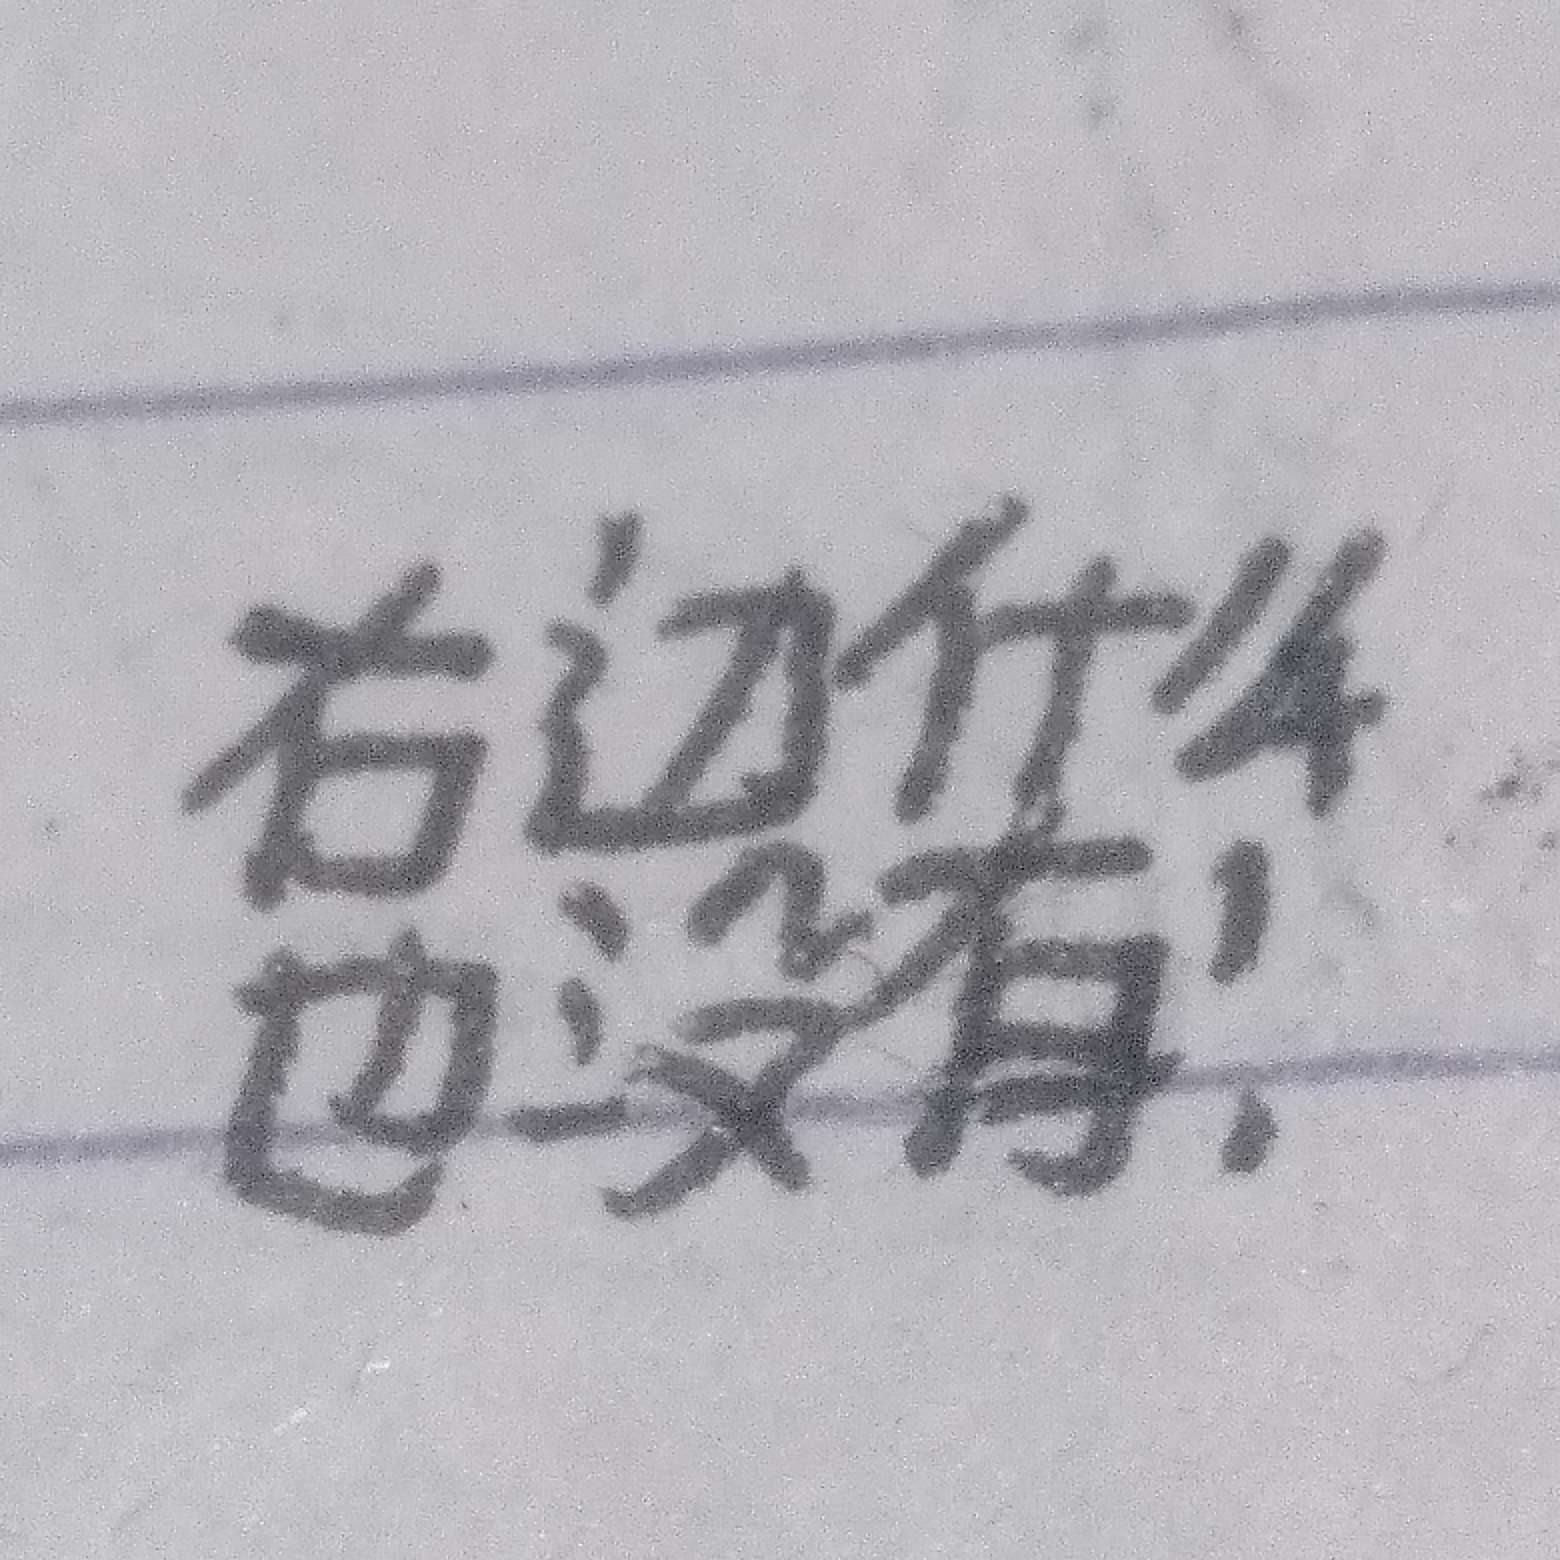 右边什么
也没有!